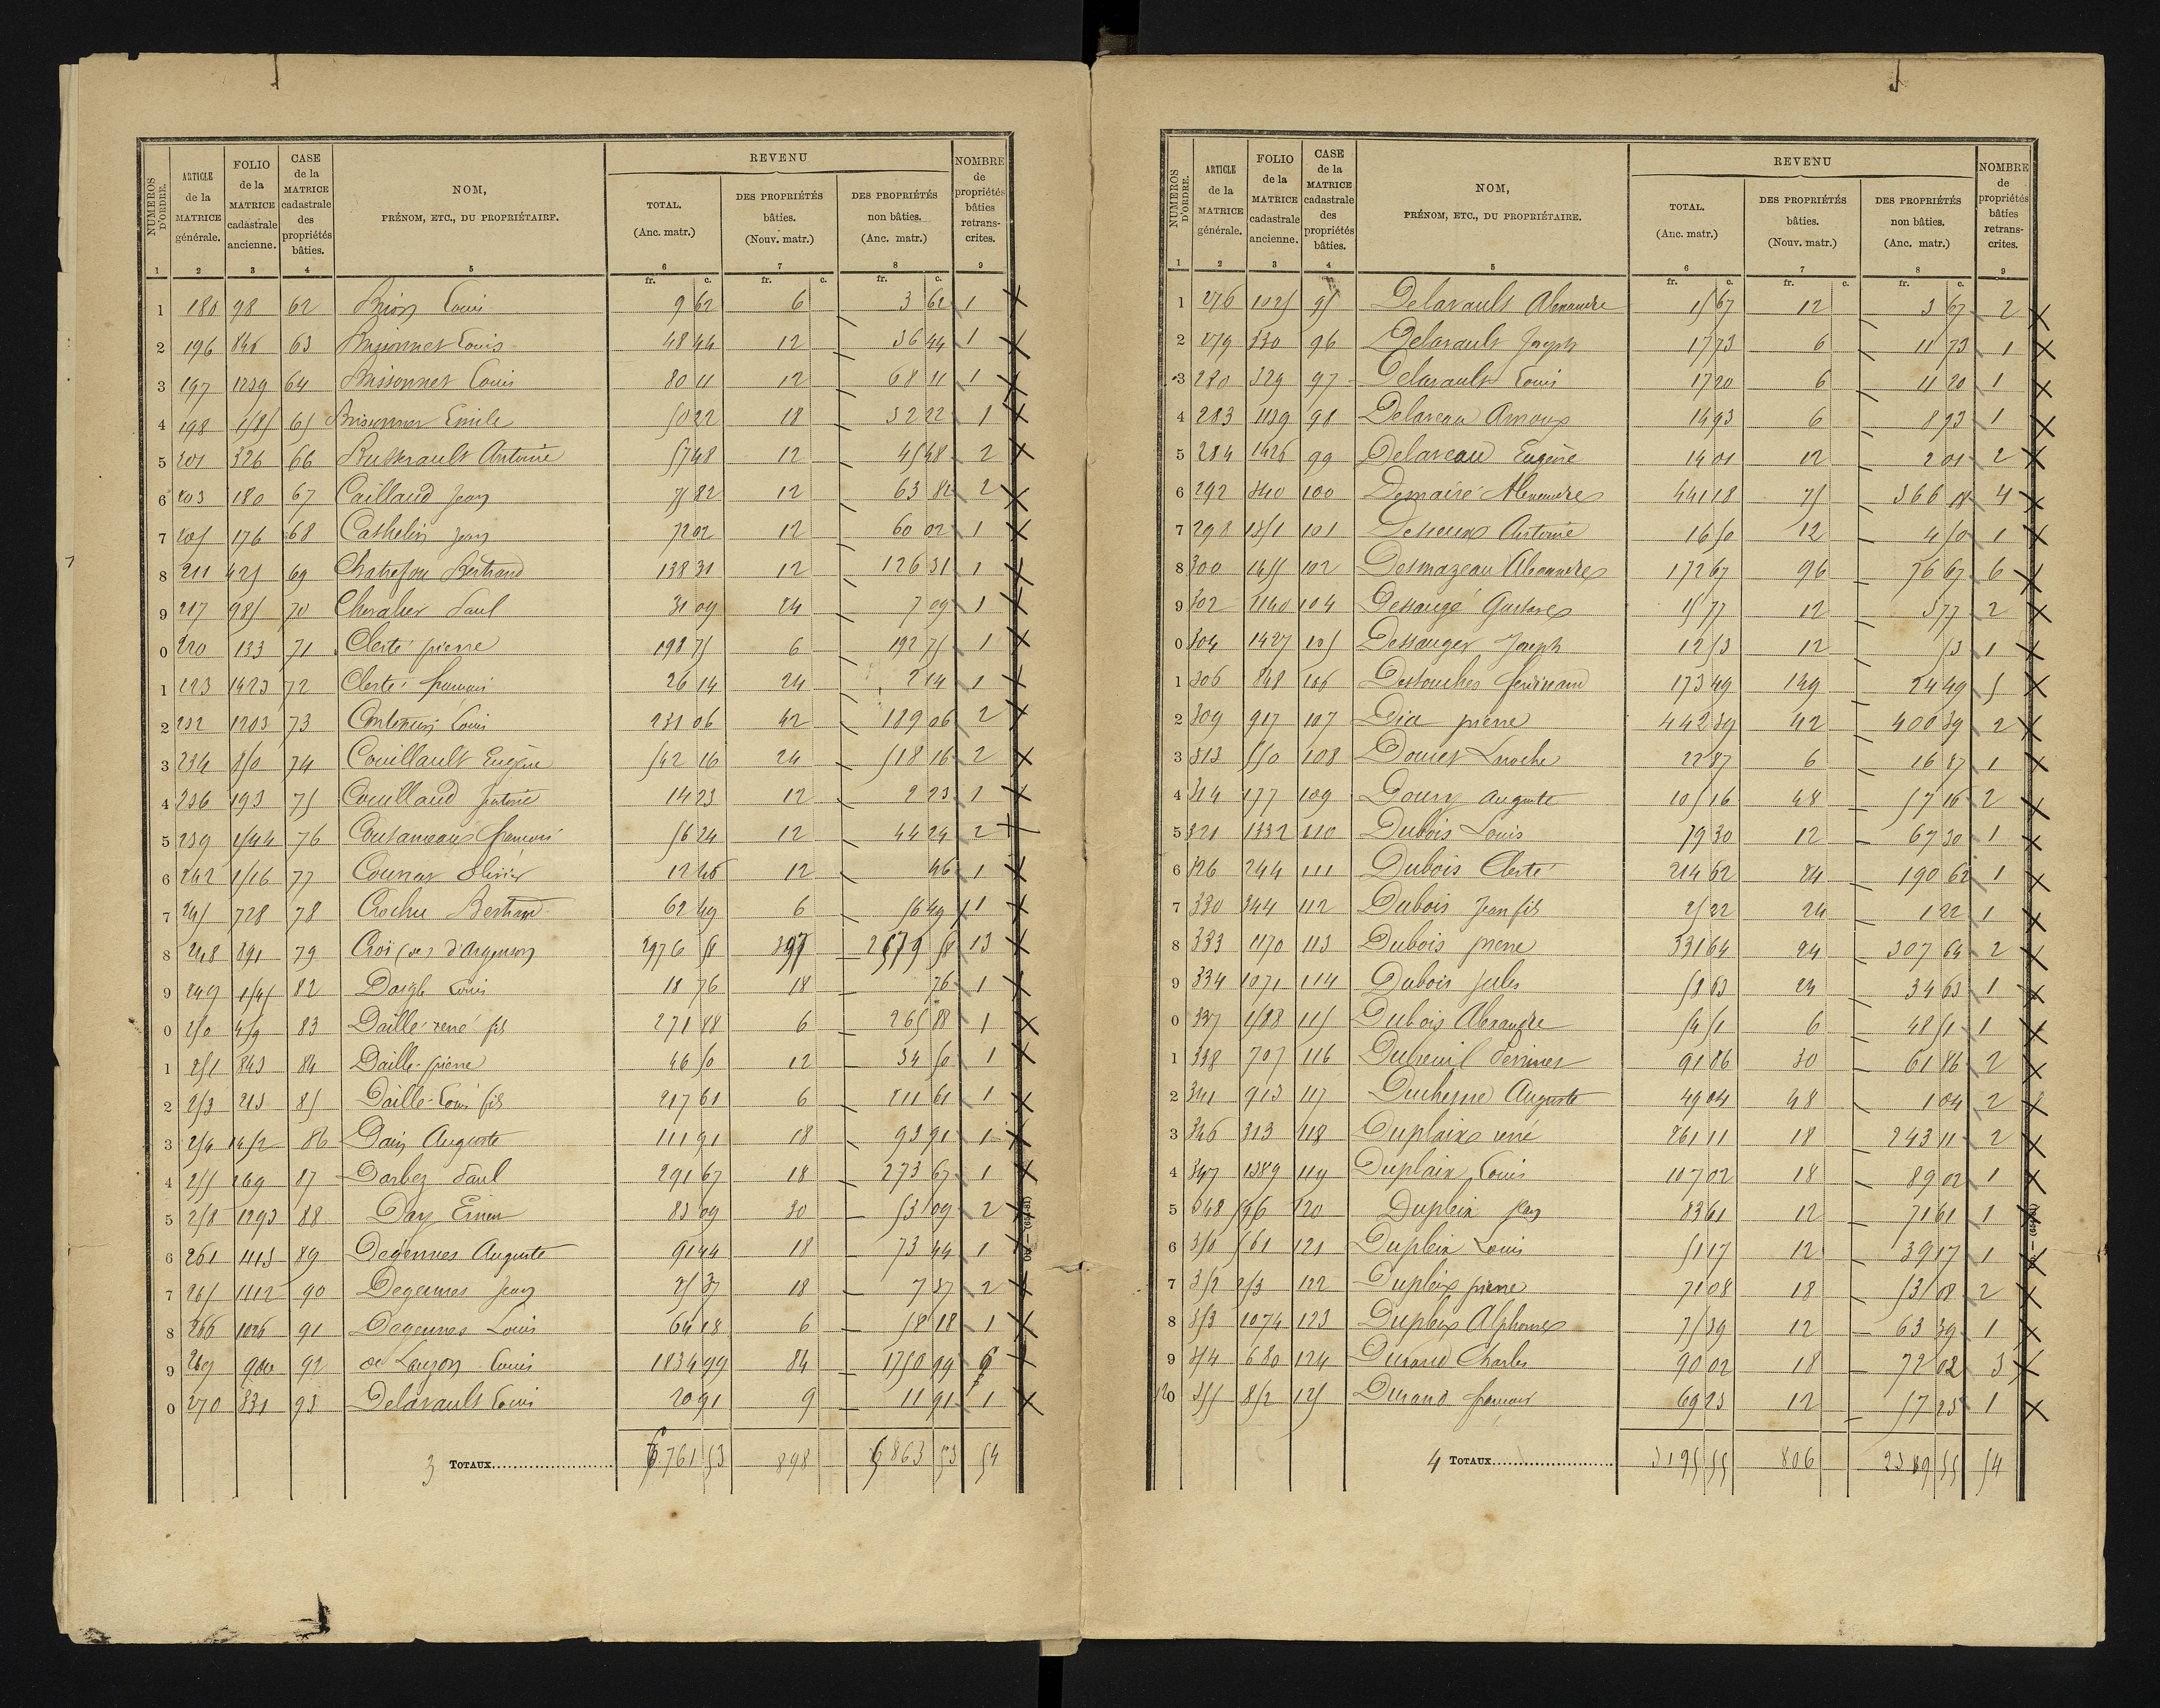 NUMÉROS D'ORDRE. ARTICLE de la MATRICE générale. FOLIO de la MATRICE cadastrale ancienne. CASE de la MATRICE cadastrale des propriétés bâties. NOM, PRÉNOM, ETC., DU PROPRIÉTAIRE. REVENU TOTAL. (Anc. matr.) DES PROPRIÉTÉS bâties. (Nouv. matr.) DES PROPRIÉTÉS non bâties. (Anc. matr.) NOMBRE de propriétés bâties retranscrites.
1 2 3 4 5 6 7 8 9
fr. c. fr. c. fr. c.
1 180 98 62 Brion Louis 9 62 6 3 62 1
2 196 846 63 Brissonnet Louis 48 44 12 36 44 1
3 197 1239 64 Brissonnet Louis 80 11 12 68 11 1
4 198 1585 65 Brissonnet Emile 50 22 18 32 22 1
5 201 326 66 Busserault Antoine 57 48 12 45 48 2
6 203 180 67 Caillaud Jean 75 82 12 63 82 2
7 205 176 68 Cathelin Jean 72 02 12 60 02 1
8 211 425 69 Chatrefou Bertrand 138 31 12 126 31 1
9 217 985 70 Chevalier Paul 31 09 24 7 09 1
0 220 133 71 Clerté pierre 198 75 6 192 75 1
1 223 1423 72 Clerté françois 26 14 24 2 14 1
2 232 1203 73 Louis 231 06 42 189 06 2
3 234 850 74 Couillault Eugène 542 16 24 518 16 2
4 236 193 75 Couillaud 14 23 12 2 23 1
5 239 1544 76 françois 56 24 12 44 24 2
6 242 1516 77 Olivier 12 46 12 46 1
7 245 728 78 Crochu Bertrand 62 49 6 56 49 1
8 248 891 79 Croï (de) d'Argenson 2976 58 397 2579 58 13
9 249 1545 82 Daigle Louis 18 76 18 76 1
0 250 459 83 Daillé rené fils 271 88 6 265 88 1
1 251 843 84 Daillé pierre 46 50 12 34 50 1
2 253 213 85 Daillé Louis fils 217 61 6 211 61 1
3 254 1452 86 Dain Auguste 111 91 18 93 91 1
4 255 269 87 Darbez Paul 291 67 18 273 67 1
5 258 1293 88 Day 83 09 30 53 09 2
6 261 1113 89 Degennes Auguste 91 44 18 73 44 1
7 265 1112 90 Degennes Jean 25 37 18 7 37 2
8 266 1026 91 Degennes Louis 64 18 6 58 18 1
9 269 900 92 de Lauzon Louis 1834 99 84 1750 99 6
0 270 331 93 Delavault Louis 20 91 9 11 91 1
3 TOTAUX 6761 53 898 5863 53 54
NUMÉROS D'ORDRE. ARTICLE de la MATRICE générale. FOLIO de la MATRICE cadastrale ancienne. CASE de la MATRICE cadastrale des propriétés bâties. NOM, PRÉNOM, ETC., DU PROPRIÉTAIRE. REVENU TOTAL. (Anc. matr.) DES PROPRIÉTÉS bâties. (Nouv. matr.) DES PROPRIÉTÉS non bâties. (Anc. matr.) NOMBRE de propriétés bâties retranscrites.
1 2 3 4 5 6 7 8 9
fr. c. fr. c. fr. c.
1 276 1025 95 Delavault Alexandre 15 67 12 3 67 2
2 279 330 96 Delavault Joseph 17 73 6 11 73 1
3 280 329 97 Delavault Louis 17 20 6 11 20 1
4 283 1139 98 Delaveau Arnoux 14 93 6 8 93 1
5 284 1426 99 Delaveau Eugène 14 01 12 2 01 2
6 292 340 100 Demairé Alexandre 441 18 75 366 18 4
7 298 1351 101 Antoine 16 50 12 4 50 1
8 300 1455 102 Desmazeau Alexandre 172 67 96 76 67 6
9 302 1140 104 Dessaugé Gustave 15 77 12 3 77 2
0 304 1427 105 Dessauger Joseph 12 53 12 53 1
1 306 848 106 Destouches ferdinand 173 49 149 24 49 5
2 309 917 107 Dia pierre 442 39 42 400 39 2
3 313 550 108 Doucet Laroche 22 87 6 16 87 1
4 314 177 109 Doury Auguste 105 16 48 57 16 2
5 321 1332 110 Dubois Louis 79 30 12 67 30 1
6 326 244 111 Dubois Clerté 214 62 24 190 62 1
7 330 344 112 Dubois Jean fils 25 22 24 1 22 1
8 333 1170 113 Dubois pierre 331 64 24 307 64 2
9 334 1071 114 Dubois Jules 58 63 24 34 63 1
0 337 1588 115 Dubois Alexandre 54 51 6 48 51 1
1 338 707 116 Dubreuil Perrinet 91 86 30 61 86 2
2 341 913 117 Duchesne Auguste 49 04 48 1 04 2
3 346 313 118 Duplaix rené 261 11 18 243 11 2
4 347 1389 119 Duplaix Louis 107 02 18 89 02 1
5 348 596 120 Dupleix Jean 83 61 12 71 61 1
6 350 561 121 Dupleix Louis 51 17 12 39 17 1
7 352 253 122 Dupleix pierre 71 08 18 53 08 2
8 353 1074 123 Dupleix Alphonse 75 39 12 63 39 1
9 354 680 124 Durand Charles 90 02 18 72 02 3
120 355 852 125 Durand françois 69 23 12 57 23 1
4 TOTAUX 3195 55 806 2389 55 54